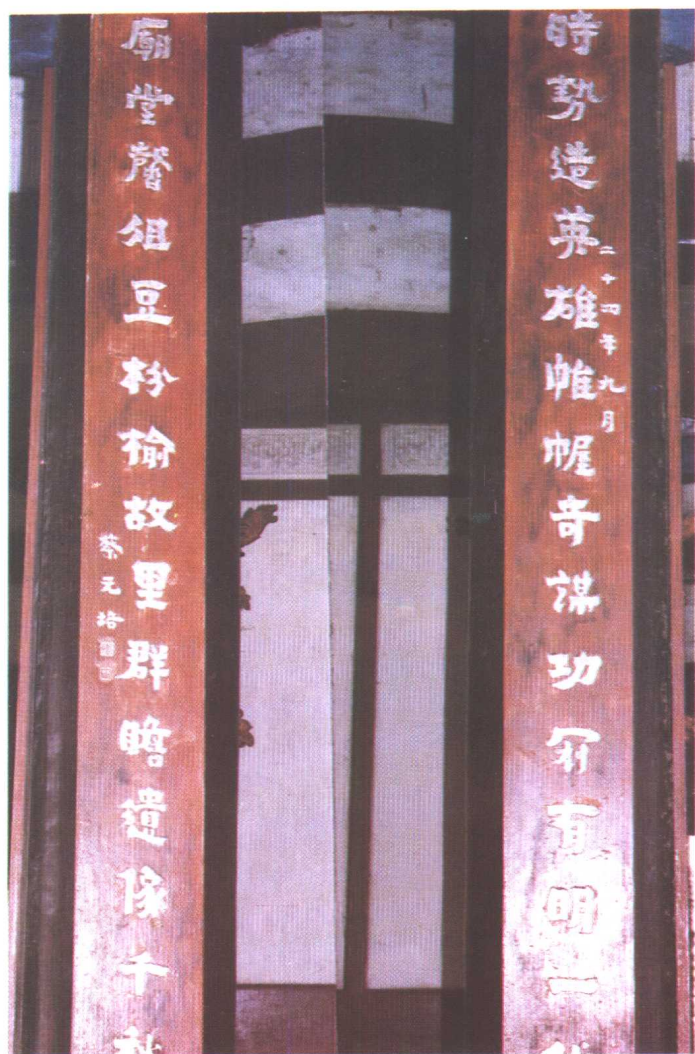 時勢造英雄帷幄奇謀功冠有明一代
二十四年九月
廟堂馨俎豆枌榆故里群瞻遺像千秋
蔡元培